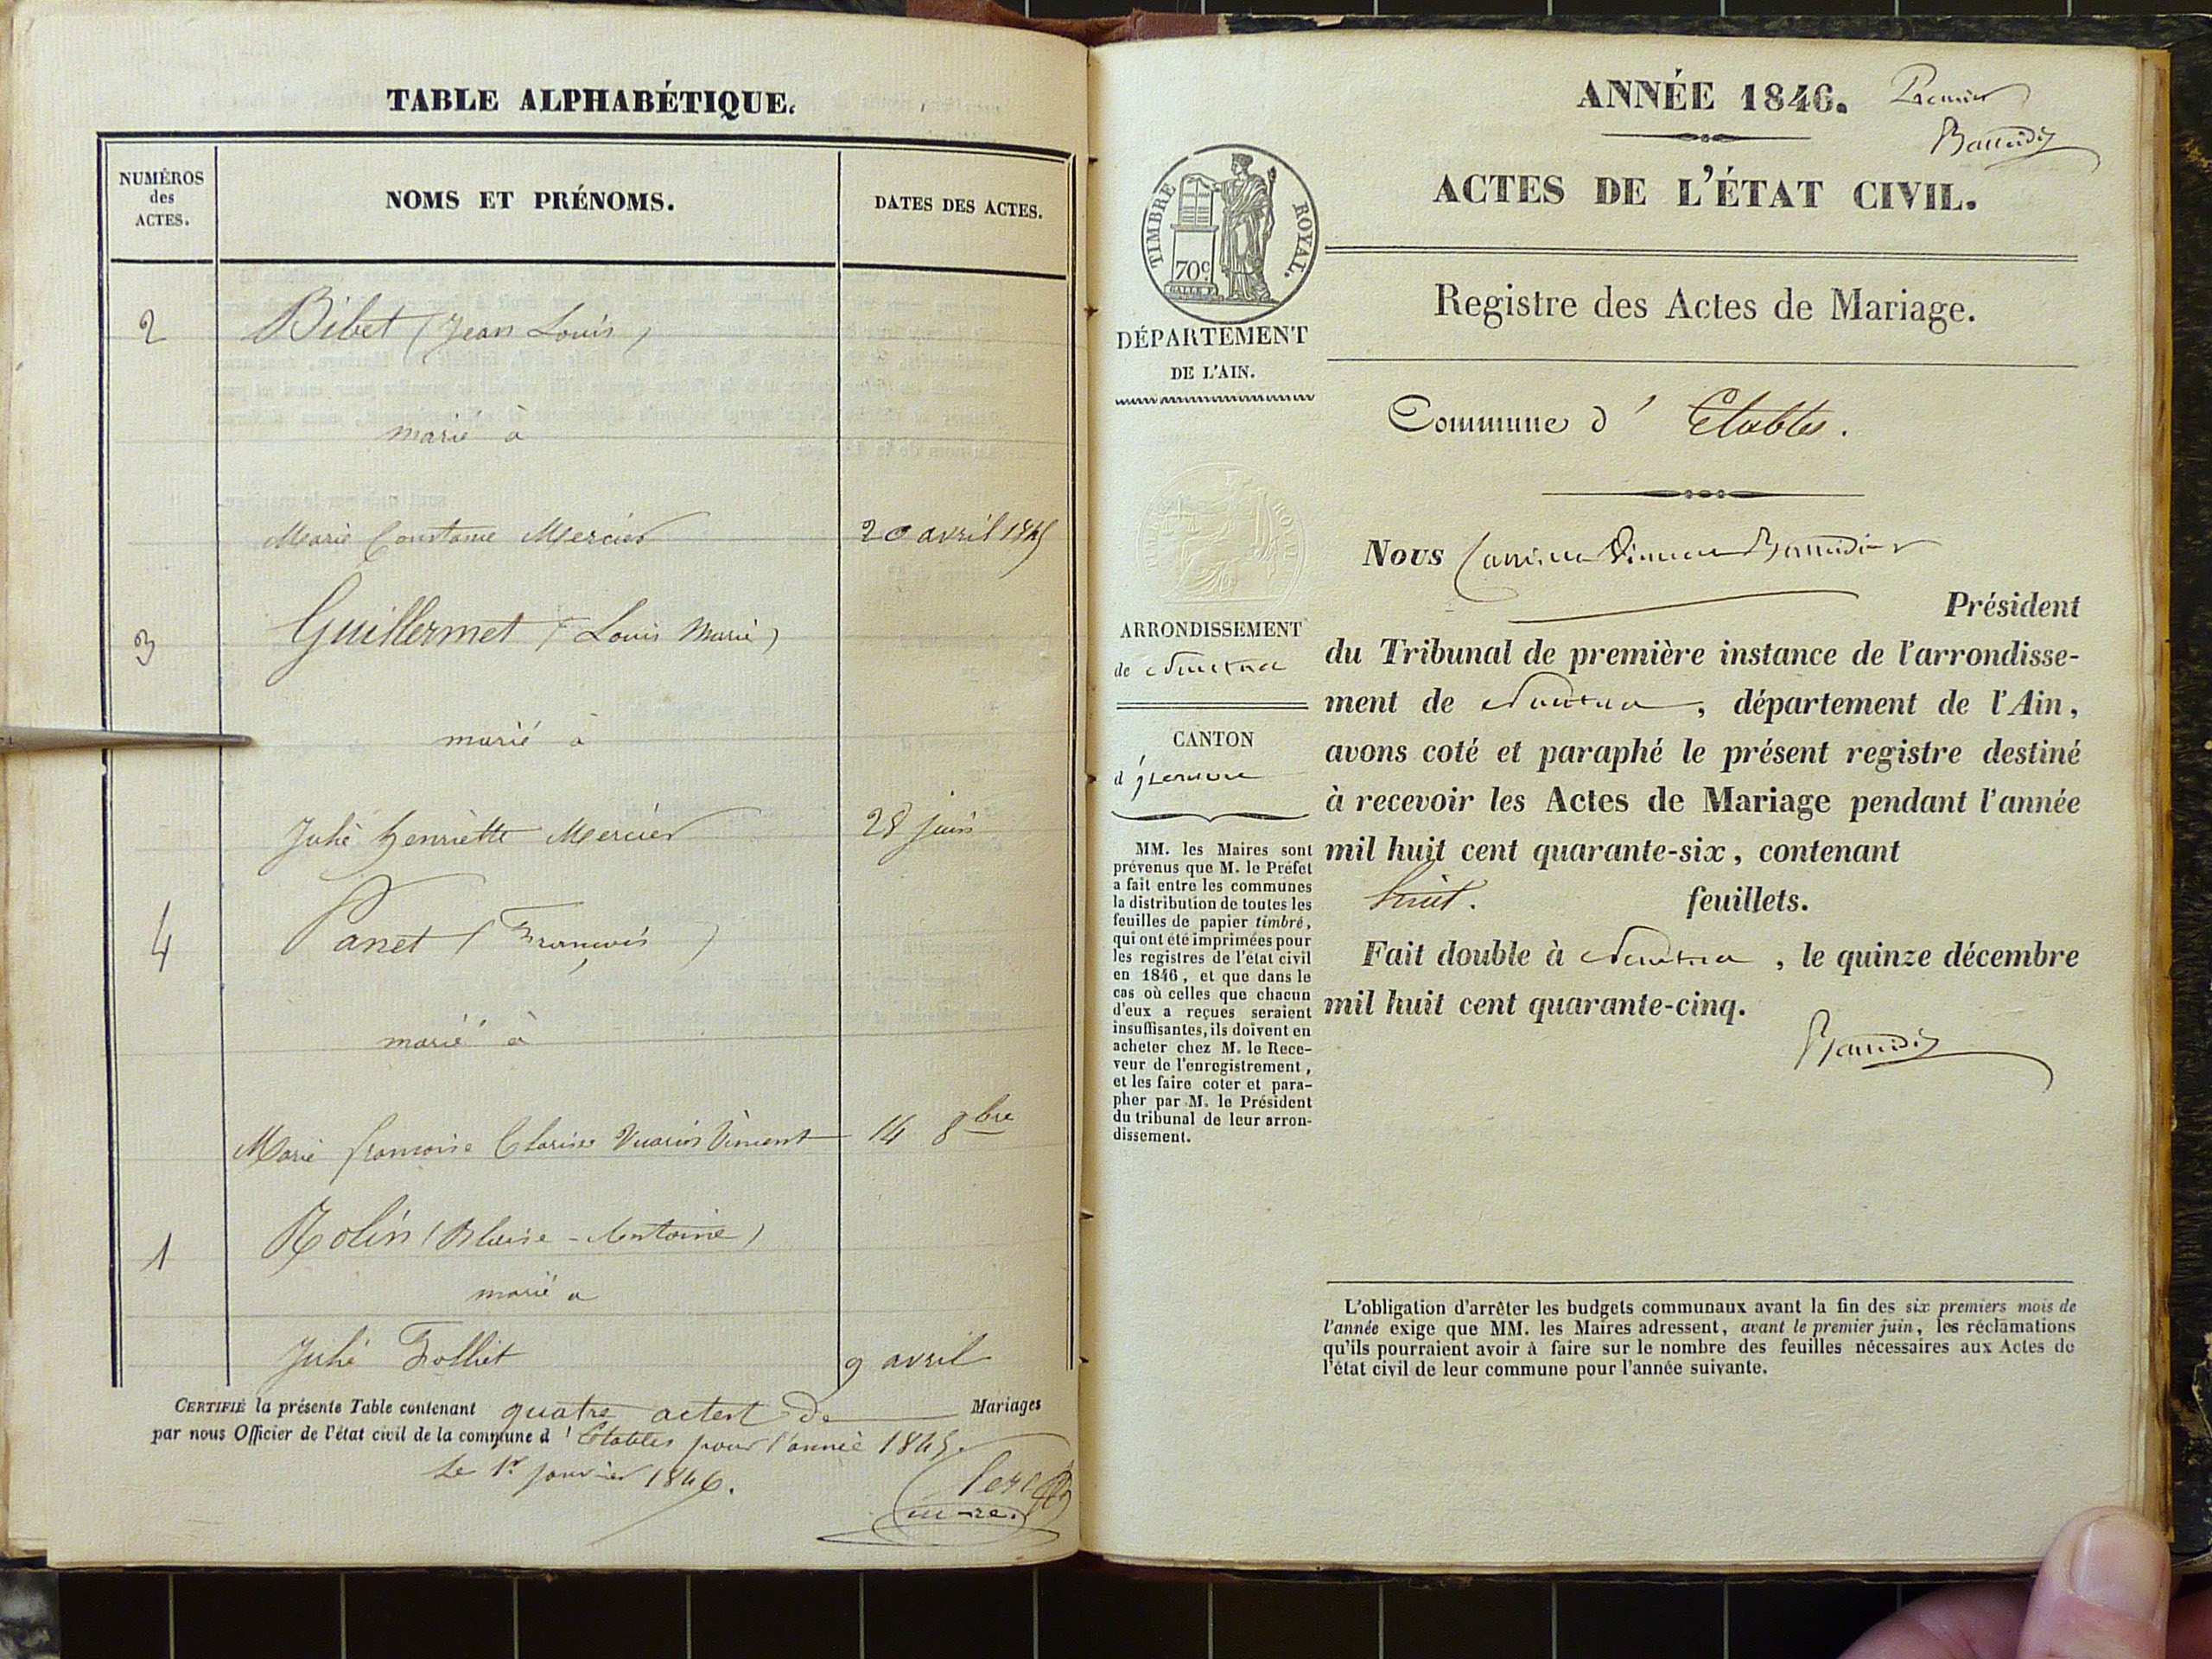 TABLE ALPHABÉTIQUE.
NUMÉROS
des
ACTES.
NOMS ET PRÉNOMS.
DATES DES ACTES.
2 Bibet (Jean Louis)
marié à
Marie Constance Mercier 20 avril 1845
3 Guillermet (Louis Marie)
marié à
Julie henriette Mercier 28 juin
4 Panet (François)
marié à
Marie françoise Clarise Vuarin Vincent 14 8bre
1 Rolin (Blaise-Antoine)
marié a
Julie Folliet 9 avril
CERTIFIÉ la présente Table contenant quatre actest de Mariages
par nous Officier de l'état civil de la commune d'Etables pour l'année 1845.
Le 1r janvier 1846.
ANNÉE 1846. Premier
ACTES DE L'ÉTAT CIVIL.
TIMBRE ROYAL.
70c
DÉPARTEMENT
DE L'AIN.
Registre des Actes de Mariage.
Commune d'Etables.
ARRONDISSEMENT
de Nantua
CANTON
MM. les Maires sont
prévenus que M. le Préfet
a fait entre les communes
la distribution de toutes les
feuilles de papier timbré,
qui ont été imprimées pour
les registres de l'état civil
en 1846, et que dans le
cas où celles que chacun
d'eux a reçues seraient
insuffisantes, ils doivent en
acheter chez M. le Rece-
veur de l'enregistrement,
et les faire coter et para-
pher par M. le Président
du tribunal de leur arron-
dissement.
Nous
Président
du Tribunal de première instance de l'arrondisse-
ment de Nantua, département de l'Ain,
avons coté et paraphé le présent registre destiné
à recevoir les Actes de Mariage pendant l'année
mil huit cent quarante-six, contenant
huit. feuillets.
Fait double à Nantua, le quinze décembre
mil huit cent quarante-cinq.
L'obligation d'arrêter les budgets communaux avant la fin des six premiers mois de
l'année exige que MM. les Maires adressent, avant le premier juin, les réclamations
qu'ils pourraient avoir à faire sur le nombre des feuilles nécessaires aux Actes de
l'état civil de leur commune pour l'année suivante.